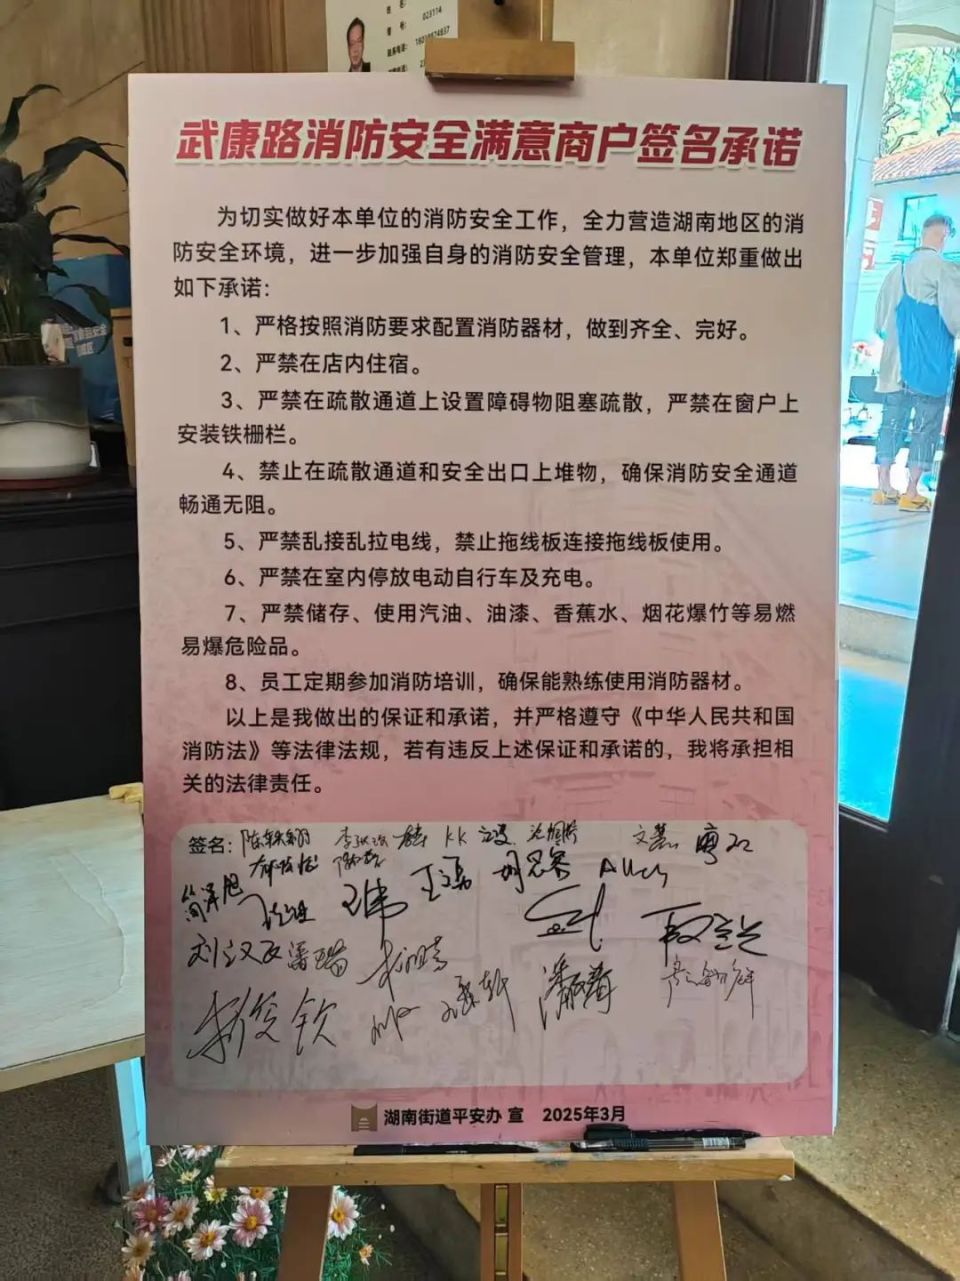 023114
武康路消防安全满意商户签名承诺
为切实做好本单位的消防安全工作，全力营造湖南地区的消
防安全环境，进一步加强自身的消防安全管理，本单位郑重做出
如下承诺：
1、严格按照消防要求配置消防器材，做到齐全、完好。
2、严禁在店内住宿。
3、严禁在疏散通道上设置障碍物阻塞疏散，严禁在窗户上
安装铁栅栏。
4、禁止在疏散通道和安全出口上堆物，确保消防安全通道
畅通无阻。
5、严禁乱接乱拉电线，禁止拖线板连接拖线板使用。
6、严禁在室内停放电动自行车及充电。
7、严禁储存、使用汽油、油漆、香蕉水、烟花爆竹等易燃
易爆危险品。
8、员工定期参加消防培训，确保能熟练使用消防器材。
以上是我做出的保证和承诺，并严格遵守《中华人民共和国
消防法》等法律法规，若有违反上述保证和承诺的，我将承担相
关的法律责任。
签名： KK
刘汉文 潘瑞
湖南街道平安办 宣 2025年3月